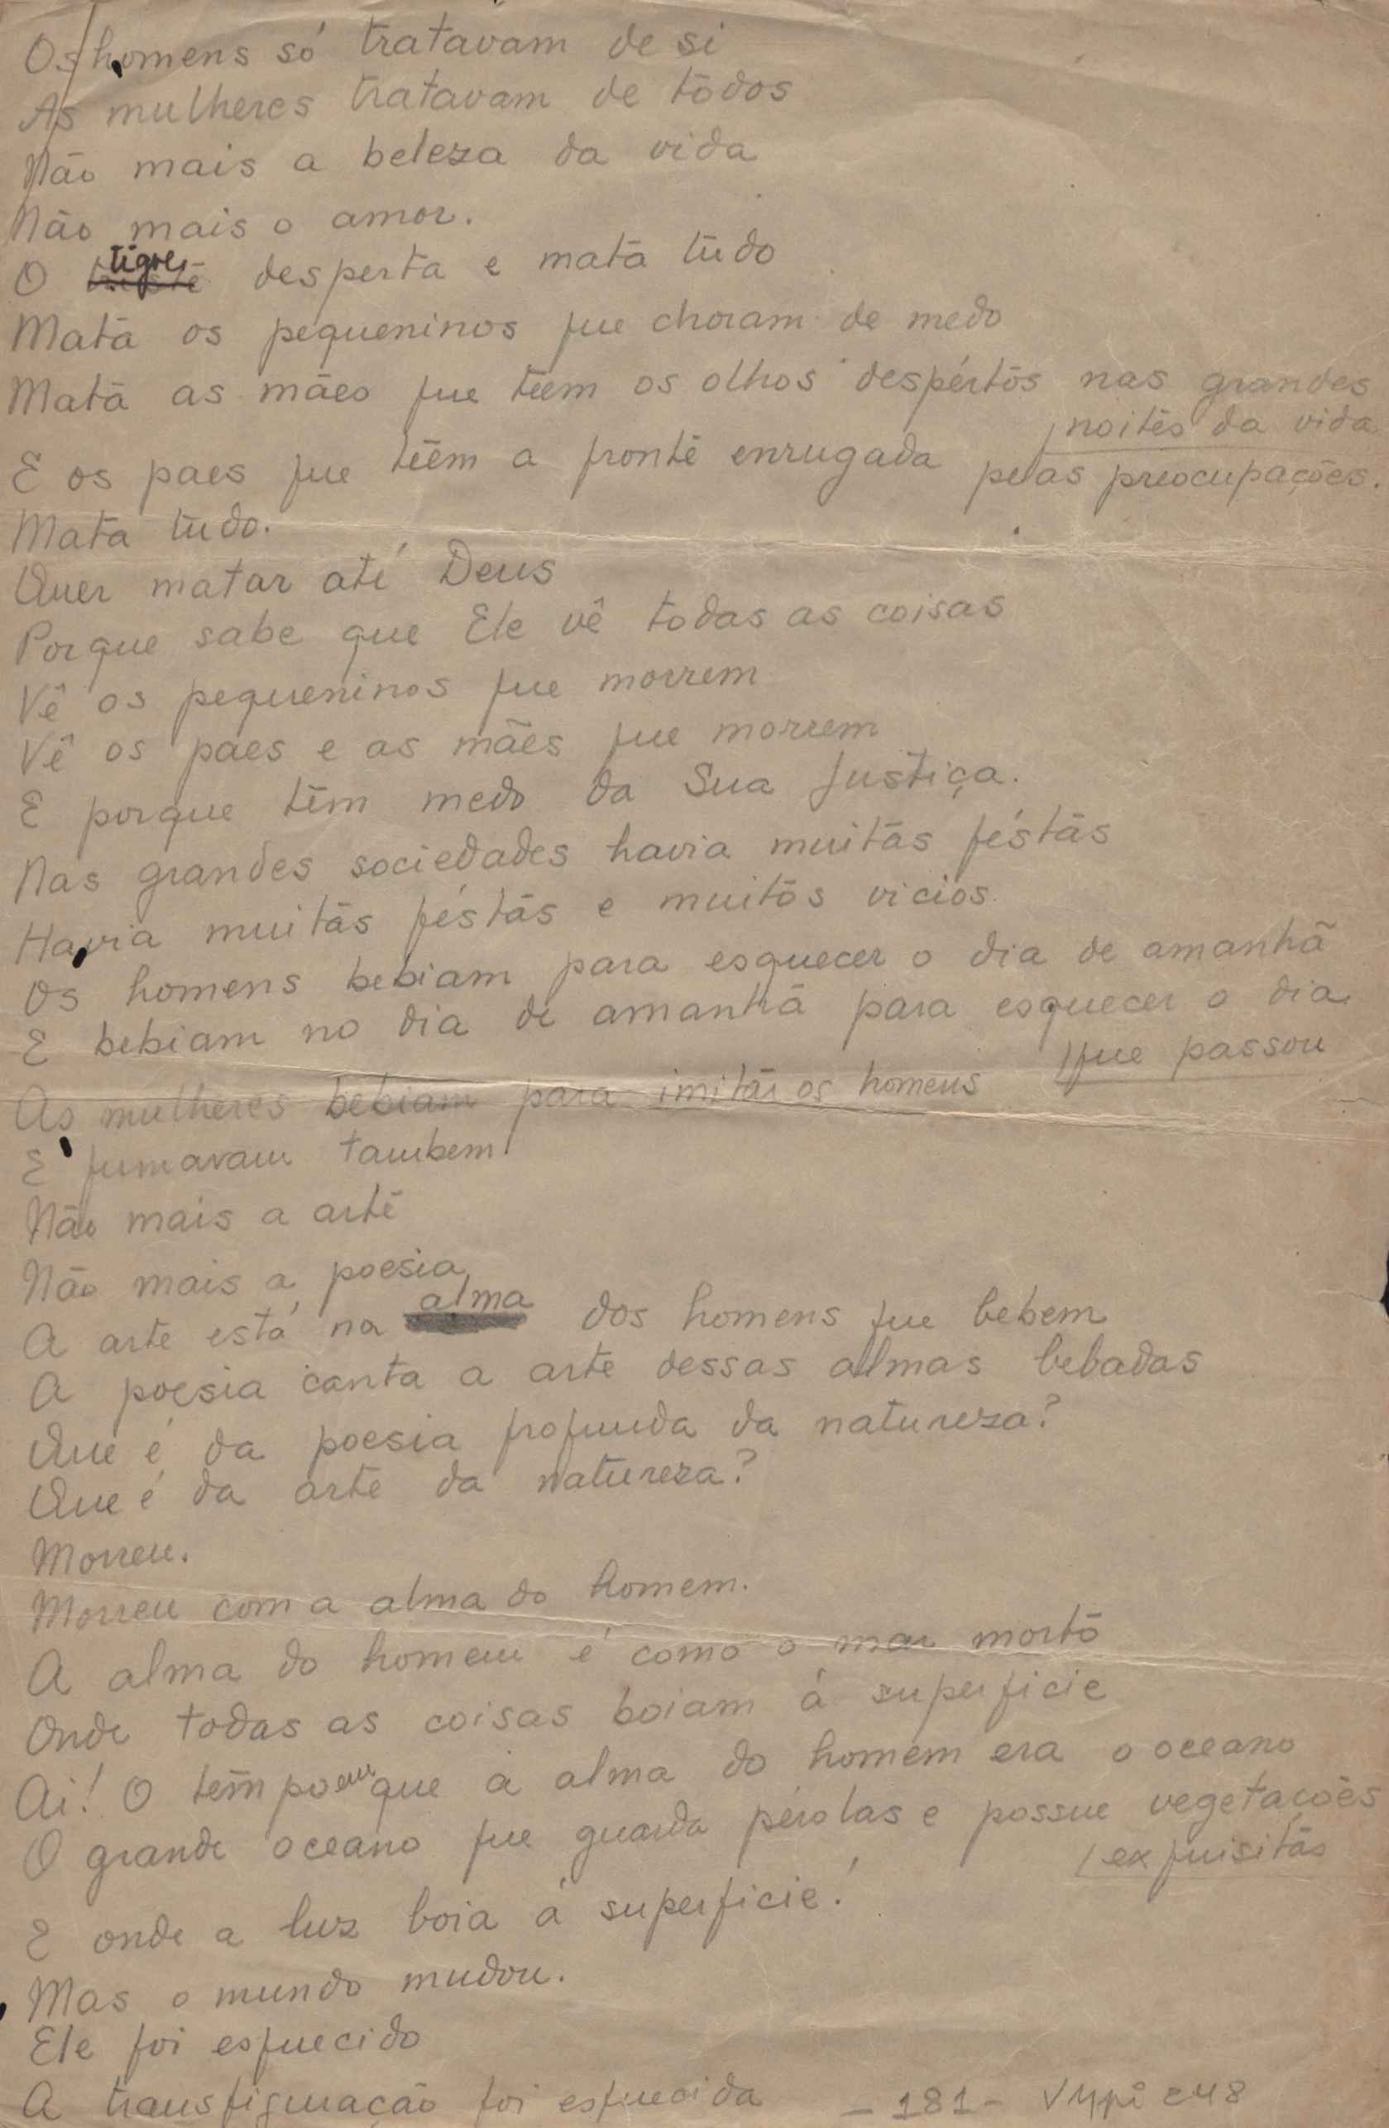 Os homens só tratavam de si
As mulheres tratavam de todos
Não mais a beleza da vida
Não mais o amor.
O tigre desperta e mata tudo
Mata os pequeninos que choram de medo
Mata as mães que teem os olhos despértos nas grandes
noites da vida
E os paes que têêm a fronte enrugada pelas preocupações.
Mata tudo.
Quer matar até Deus
Porque sabe que Ele vê todas as coisas
Vê os pequeninos que morrem
Vê os paes e as mães que morrem
E porque têm medo da Sua Justiça.
Nas grandes sociedades havia muitas féstas
Havia muitas féstas e muitos vicios.
Os homens bebiam para esquecer o dia de amanhã
E bebiam no dia de amanhã para esquecer o dia
que passou
As mulheres bebiam para imitar os homens
E fumavam tambem
Não mais a arte
Não mais a poesia
A arte está na alma dos homens que bebem
A poesia canta a arte dessas almas bebadas
Que é da poesia profunda da natureza?
Que é da arte da natureza?
Morreu.
Morreu com a alma do homem.
A alma do homem é como o mar morto
Onde todas as coisas boiam á superficie
Ai! O tempo em que a alma do homem era o oceano
O grande oceano que guarda pérolas e possue vegetações
exquisitas
E onde a luz boia á superficie!
Mas o mundo mudou.
Ele foi esquecido
A transfiguração foi esquecida - 181-